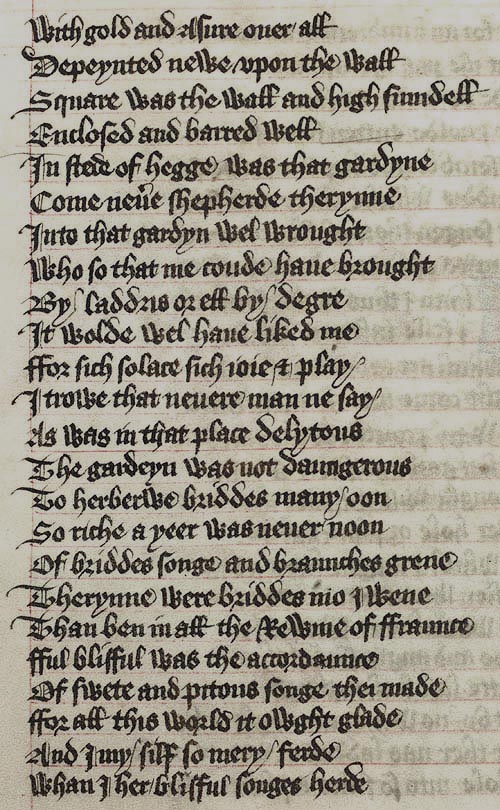 With gold and Asure ouer all
Depeynted newe vpon the wall
Square was the wall and high sumdell
Enclosed and barred well
In stede of hegge was that gardyne
Come neu̅e shepherde therynne
Into that gardyn wel wrought
Who so that me coude haue brought
By laddris or ell by degre
It wolde wel haue liked me
ffor sich solace sich ioie & play
I trowe that neuere man ne say
As was in that place delytous
The gardeyn was not daungerous
To herberwe briddes many oon
So riche a yeer was neuer noon
Of briddes songe and braunches grene
Therynne were briddes mo I wene
Than ben in all the Rewme of ffraunce
fful blisful was the accordaunce
Of swete and pitous songe thei made
ffor all this world it owght glade
And I my silf so mery ferde
Whan I her blisful songes herde